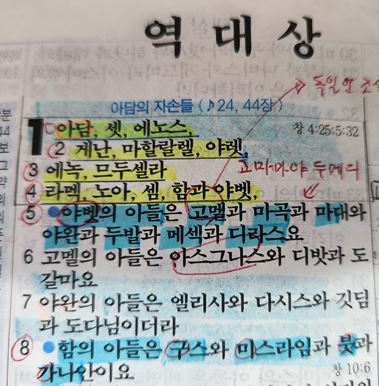 역 대 상
→ 독일 안 조상
아담의 자손들 (♪24, 44장)
1 아담, 셋, 에노스,
창 4:25;5:32
2 게난, 마할랄렐, 야렛
3 에녹, 므두셀라
4 라멕, 노아, 셈, 함과 야벳,
5 야벳의 아들은 고멜과 마곡과 마대와
야완과 두발과 메섹과 디라스요
6 고멜의 아들은 아스그나스와 디밧과 도
갈마요
7 야완의 아들은 엘리사와 다시스와 깃딤
과 도다님이더라
8 함의 아들은 구스와 미스라임과 붓과
가나안이요
창 10:6